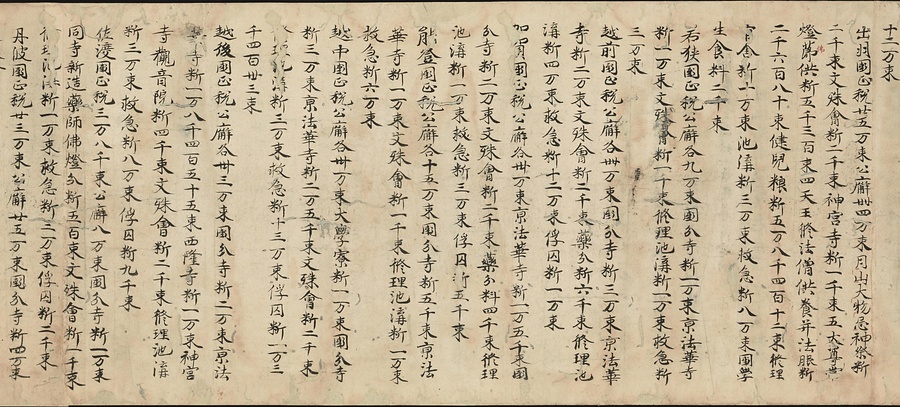 十二万束
出羽国正税廿五万束公廨卌四万束月山大物忌神祭断
二千束文殊會断二千束神宮寺断一千束五大尊常
燈節供断五千三百束四天王修法僧供養并法服断
二千六百八十束健児粮断五万八千四百十二束修理
官舎断十万束池溝断三万束救急断八万束国學
生食料二千束
若狭国正税公廨各九万束国分寺断一万束京法華寺
断一万束文殊會断一千束修理池溝断一万束救急断
三万束
越前国正税公廨各卌万束国分寺断三万束京法華
寺断二万束文殊會断二千束藥分断六千束修理池
溝断四万束救急断十二万束俘囚断一万束
加賀国正税公廨各卅万束京法華寺断一万五千束国
分寺断二万束文殊會断二千束藥分料四千束修理
池溝断一万束救急断三万束俘囚断五千束
能登国正税公廨各十五万束国分寺断五千束京法
華寺断一万束文殊會断一千束修理池溝断一万束
救急断六万束
越中国正税公廨各卅万束大學寮断一万束国分寺
断三万束京法華寺断二万五千束文殊會断二千束
修理池溝断三万束救急断十三万束俘囚断一万三
千四百卅三束
越後国正税公廨各卅三万束国分寺断二万束京法
華寺断一万八千四百五十五束西隆寺断一万束神宮
寺觀音院断四千束文殊會断二千束修理池溝
断三万束救急断八万束俘囚断九千束
佐渡国正税三万八千束公廨八万束国分寺断一万束
同寺新造藥師佛燈分断五百束文殊會断一千束
修理池溝断一万束救急断二万束俘囚断二千束
丹波国正税廿三万束公廨廿五万束国分寺断四万束